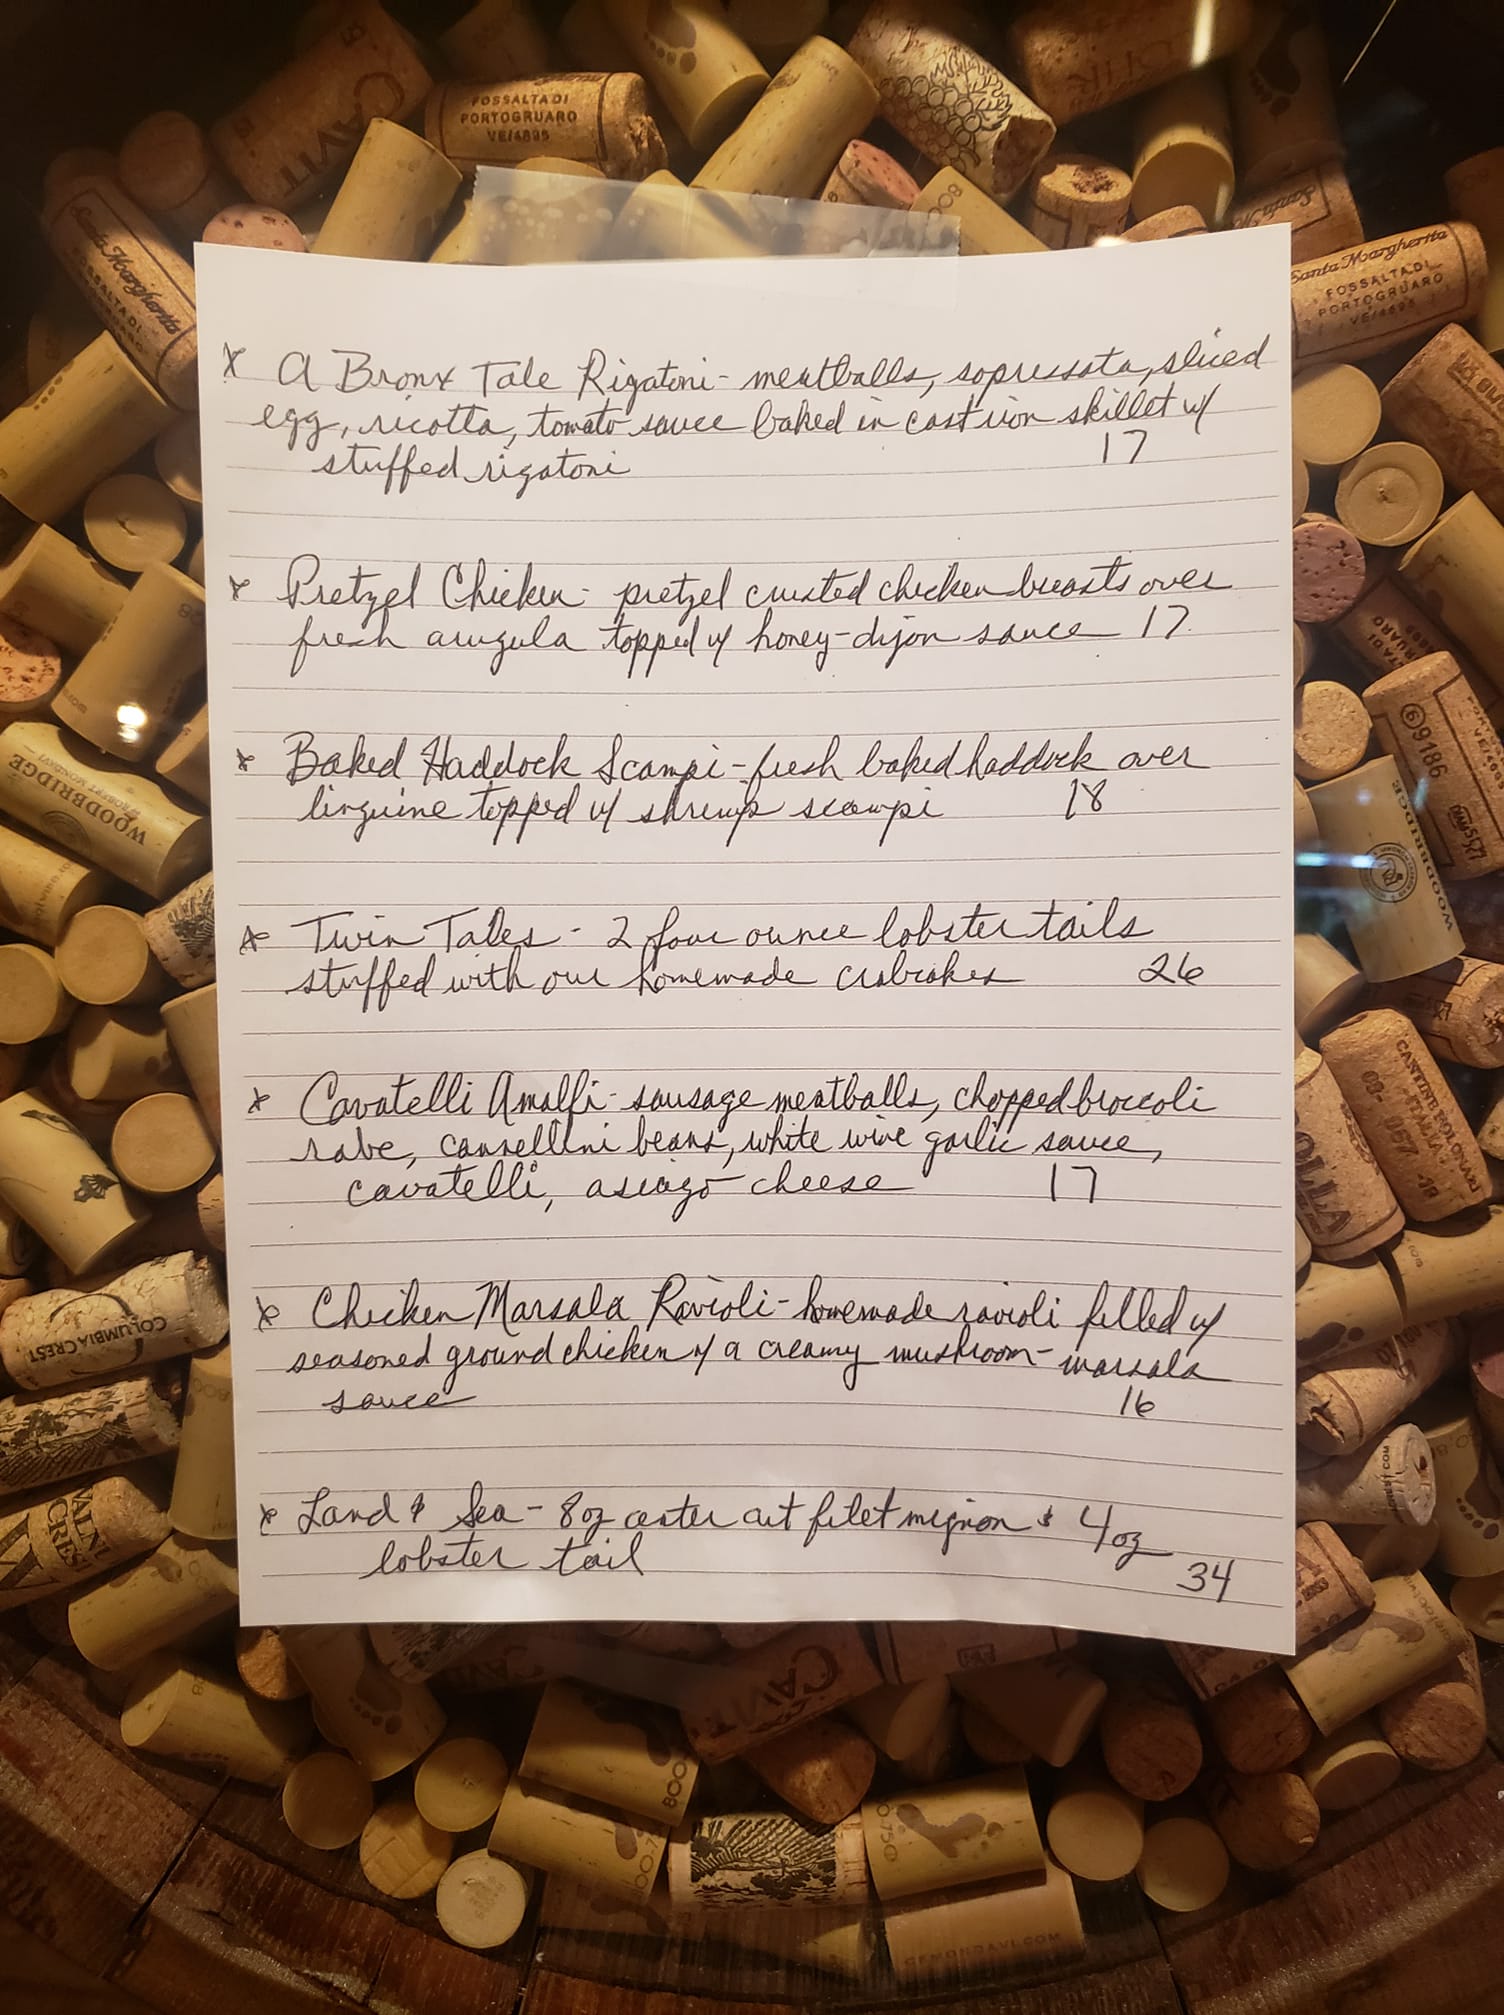 FOSSALTA DI
PORTOGRUARO
VE/4895
CAVIT
Santa Margherita
FOSSALTA DI
Santa Margherita
FOSSALTA DI
PORTOGRUARO
VE/4895
* A Bronx Tale Rigatoni - meatballs, sopressata, sliced
egg, ricotta, tomato sauce baked in cast iron skillet w/
stuffed rigatoni 17
* Pretzel Chicken - pretzel crusted chicken breasts over
fresh arugula topped w/ honey-dijon sauce 17
* Baked Haddock Scampi - fresh baked haddock over
linguine topped w/ shrimp scampi 18
* Twin Tales - 2 four ounce lobster tails
stuffed with our homemade crabcakes 26
* Cavatelli Amalfi - sausage meatballs, chopped broccoli
rabe, cannellini beans, white wine garlic sauce,
cavatelli, asiago cheese 17
* Chicken Marsala Ravioli - homemade ravioli filled w/
seasoned ground chicken w/ a creamy mushroom-marsala
sauce 16
* Land & Sea - 8oz center cut filet mignon & 4oz
lobster tail 34
WOODBRIDGE
BY ROBERT MONDAVI
9186
WOODBRIDGE
COLUMBIA CREST
WALNUT
CREST
CAVIT
800